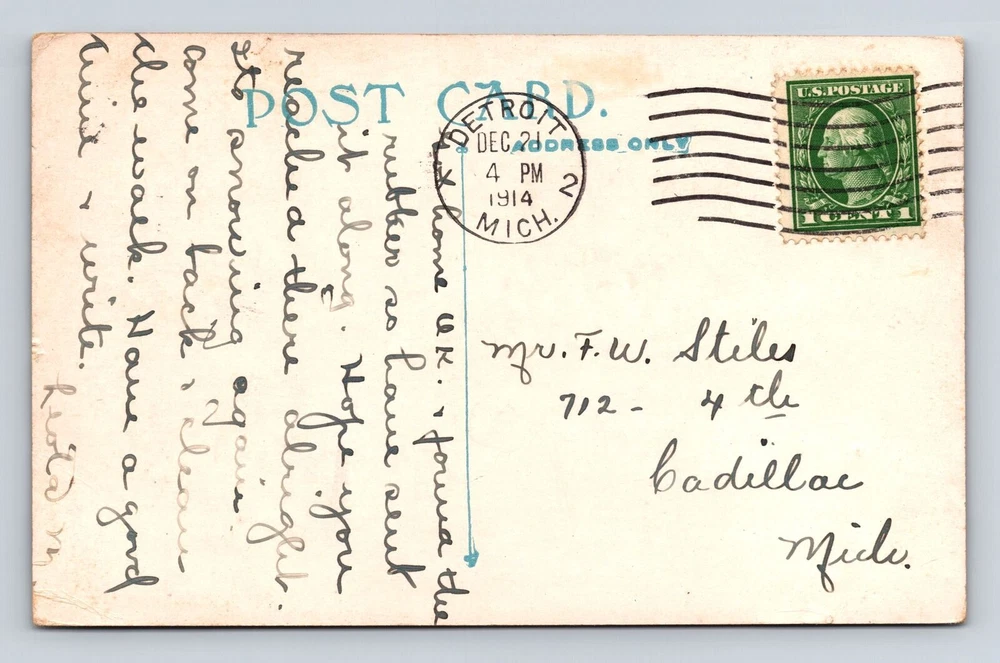 POST CARD.
ADDRESS ONLY
DETROIT
DEC 21
4 PM
1914
MICH.
2
U.S. POSTAGE
1 CENT 1
Mr. F. W. Stiles
712 - 4th
Cadillac
Mich.
home O.K. & found the
rubbers so have sent
it along. Hope you
reached there alright.
Its snowing again.
Come on back & clean
the walk. Have a good
time & write.